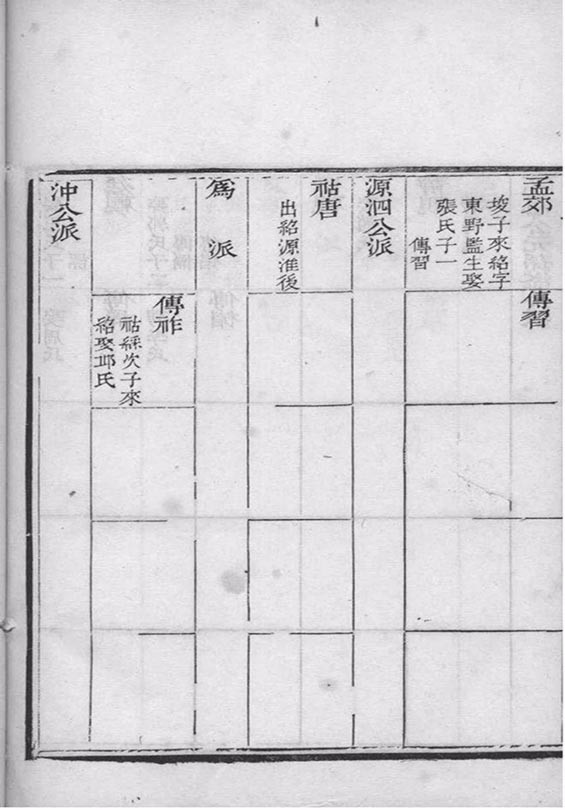 孟郊
坡子來紹字
東野監生娶
張氏子一
傳習
傳習
源泗公派
祜唐
出紹源淮後
爲派
傳祚
祜繇次子來
紹娶邛氏
沖公派